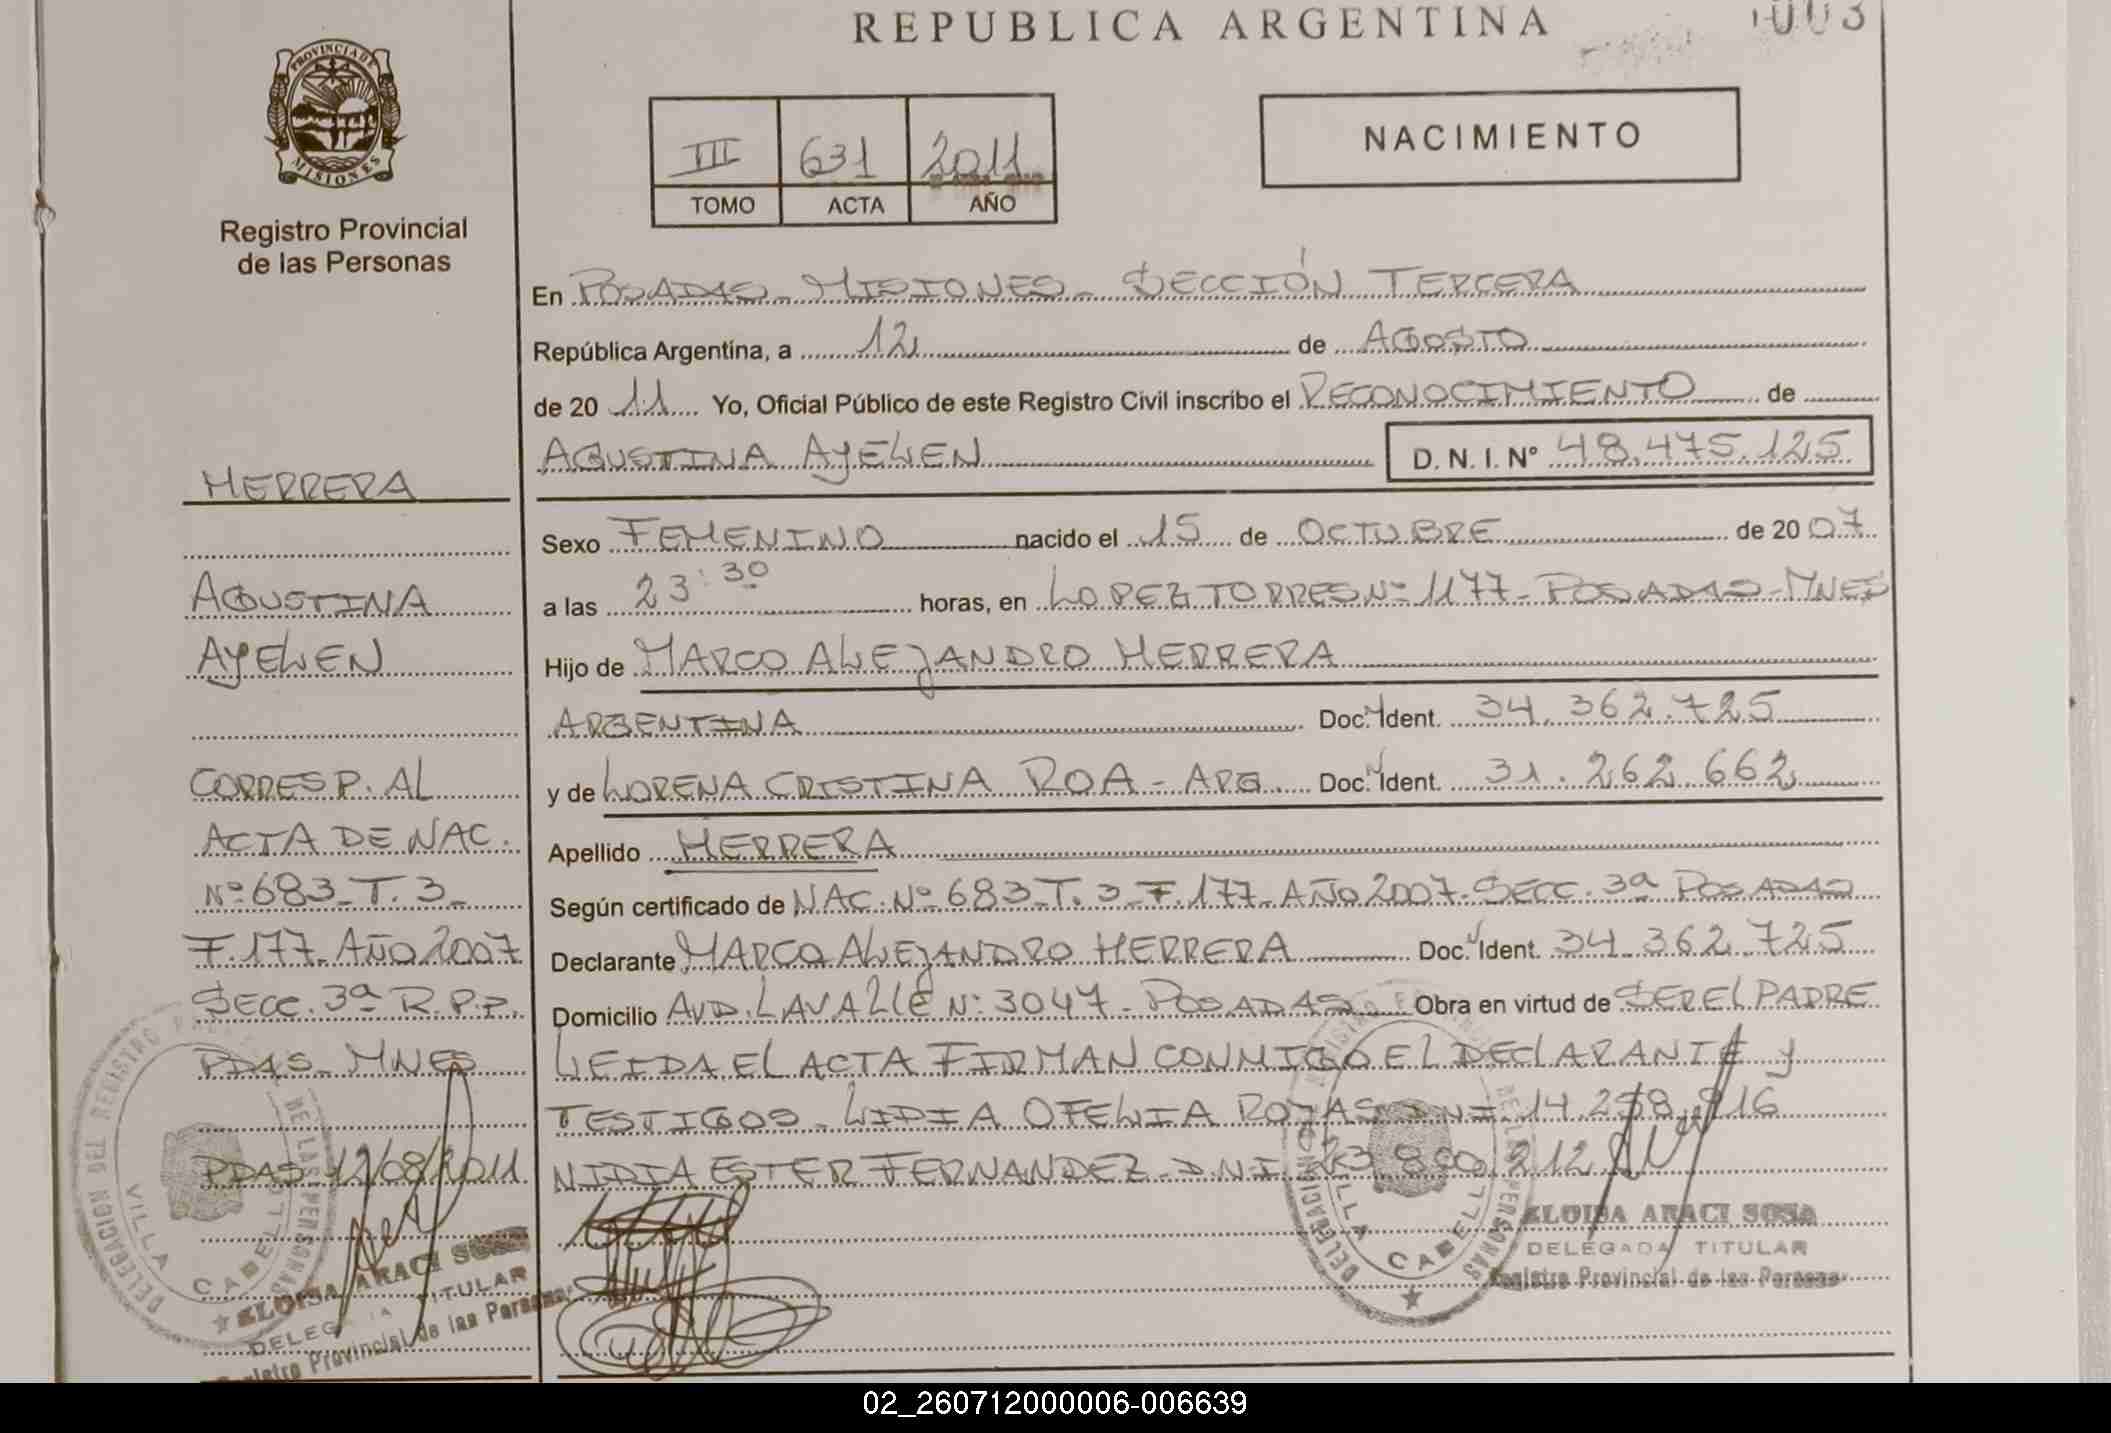 REPUBLICA ARGENTINA
PROVINCIA DE
MISIONES
Registro Provincial
de las Personas
III 631 2011
TOMO ACTA AÑO
NACIMIENTO
En POSADAS - MISIONES - SECCIÓN TERCERA
República Argentina, a 12 de AGOSTO
de 20 11 Yo, Oficial Público de este Registro Civil inscribo el RECONOCIMIENTO de
AGUSTINA AYELEN D. N. I. N° 48.475.125
Sexo FEMENINO nacido el 15 de OCTUBRE de 20 07
a las 23:30 horas, en LOPEZ TORRES Nº 1177 - POSADAS - MNES
Hijo de MARCO ALEJANDRO HERRERA
ARGENTINA Doc. Ident. 34.362.725
y de LORENA CRISTINA ROA - ARG. Doc. Ident. 31.262.662
Apellido HERRERA
Según certificado de NAC. Nº 683 - T. 3 - F. 177 - AÑO 2007 - SECC. 3ª POSADAS
Declarante MARCO ALEJANDRO HERRERA Doc. Ident. 34.362.725
Domicilio AVD. LAVALLE Nº 3047 - POSADAS Obra en virtud de SER EL PADRE
LEIDA EL ACTA FIRMAN CONMIGO EL DECLARANTE y
TESTIGOS - LIDIA OFELIA ROJAS DNI 14.258.916
NIDIA ESTER FERNANDEZ - D.N.I. 23.890.212
HERRERA
AGUSTINA
AYELEN
CORRESP. AL
ACTA DE NAC.
Nº 683 - T. 3 -
F. 177 - AÑO 2007
SECC. 3ª R.P.P.
PDAS - MNES
PDAS 12/08/2011
DELEGACION DEL REGISTRO DE LAS PERSONAS
VILLA CABELLO
ELOISA ARACI SOSA
DELEGADA TITULAR
Registro Provincial de las Personas
DELEGACION REGISTRO DE LAS PERSONAS
VILLA CABELLO
ELOISA ARACI SOSA
DELEGADA TITULAR
Registro Provincial de las Personas
02_260712000006-006639